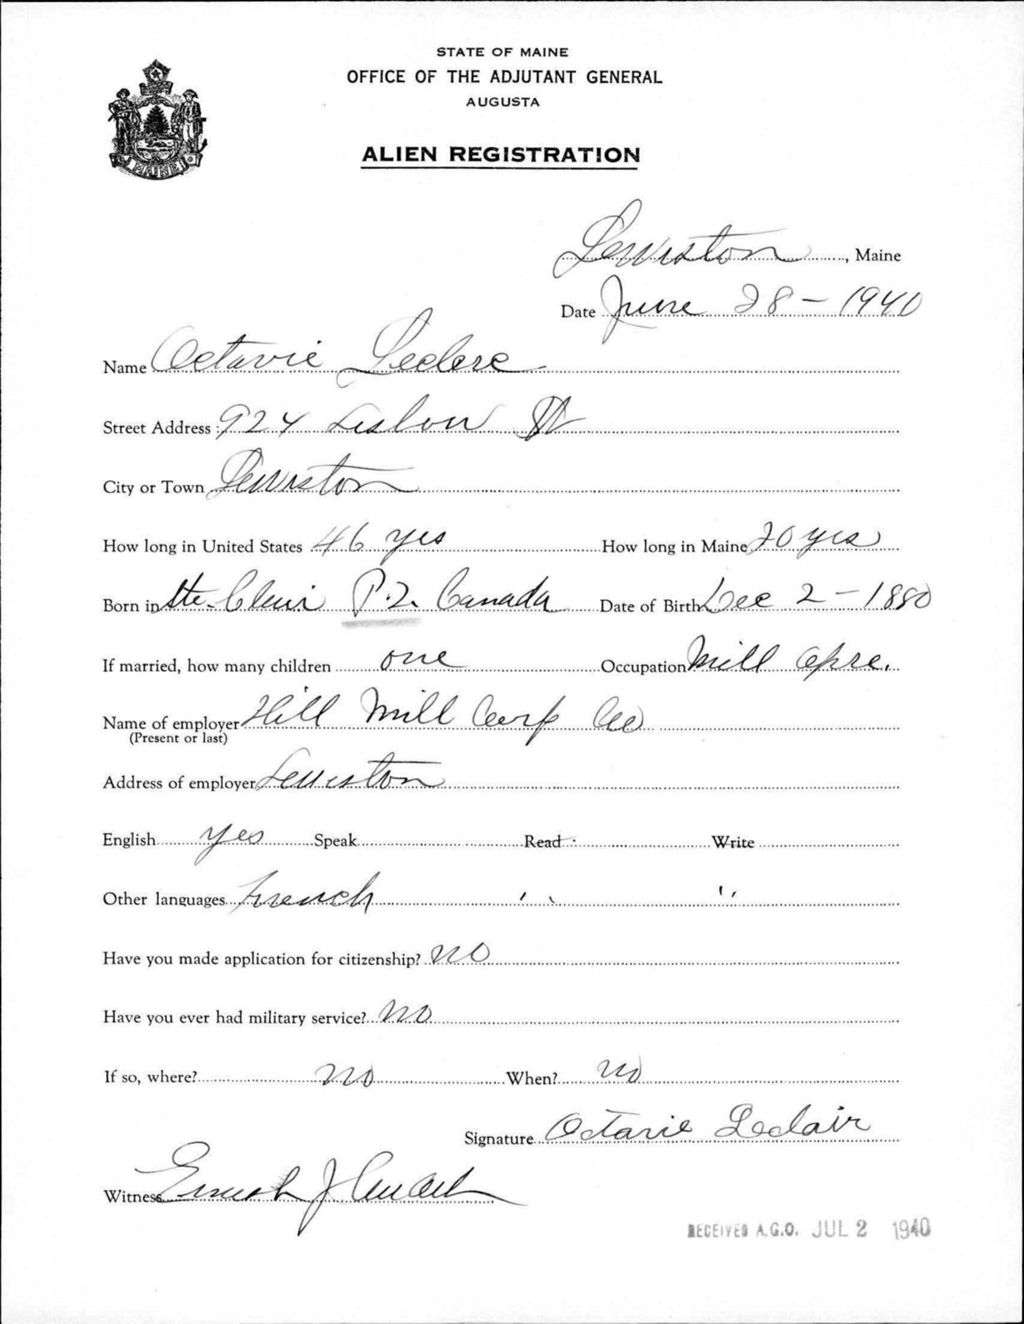 STATE OF MAINE
OFFICE OF THE ADJUTANT GENERAL
AUGUSTA
ALIEN REGISTRATION
MAINE
Lewiston, Maine
Date June 28 - 1940
Name Octavie Leclerc
Street Address: 924 Lisbon St
City or Town Lewiston
How long in United States 46 yrs How long in Maine 20 yrs
Born in Ste. P.Q. Canada Date of Birth Dec 2 - 1880
If married, how many children one Occupation Mill Opre.
Name of employer Hill Mill Corp Co
(Present or last)
Address of employer Lewiston
English yes Speak Read Write
Other languages French " "
Have you made application for citizenship? no
Have you ever had military service? no
If so, where? no When? no
Signature Octavie Leclair
Witness J
RECEIVED A.G.O. JUL 2 1940